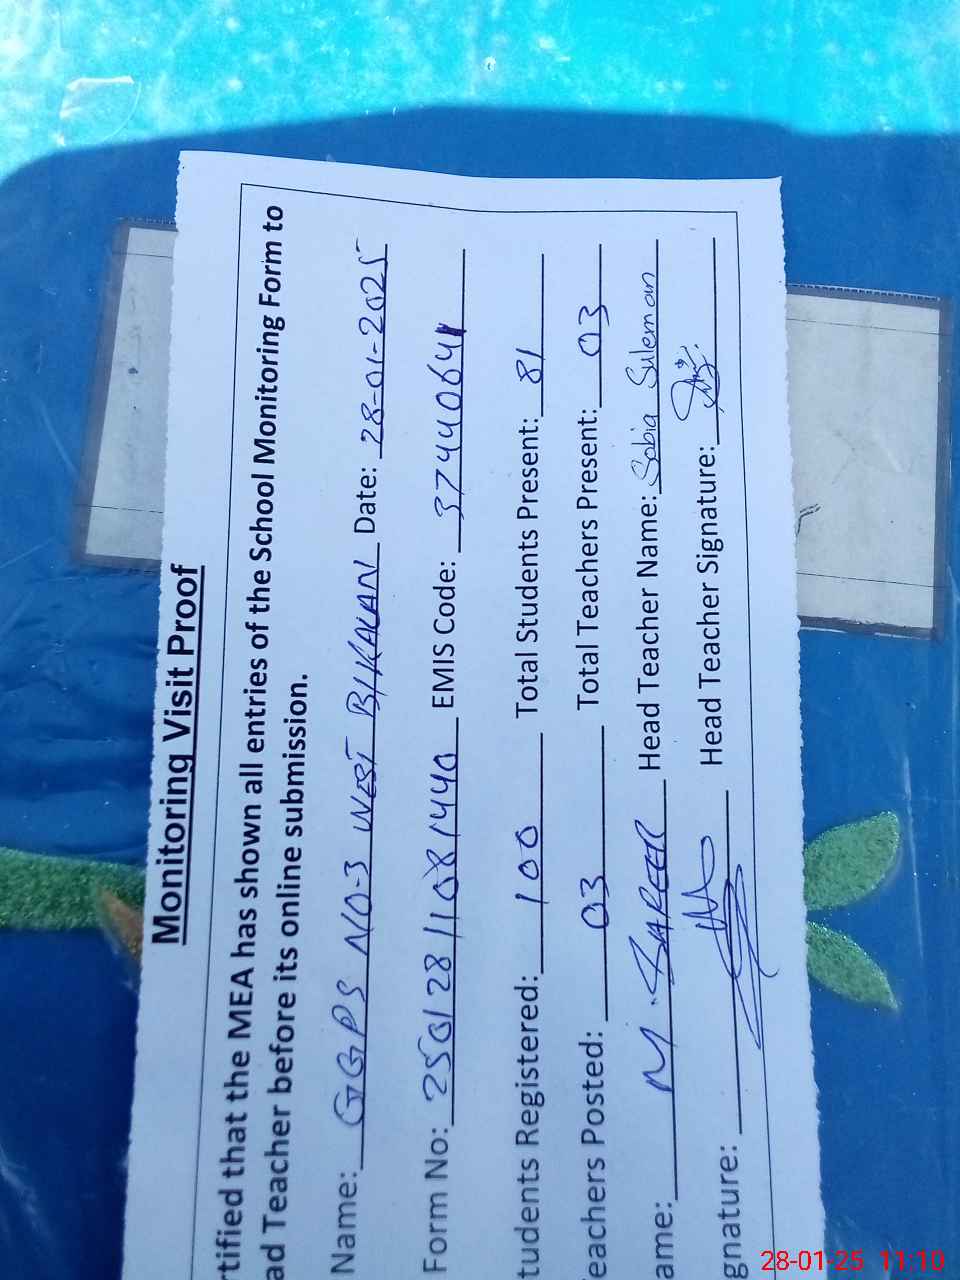 Monitoring Visit Proof
rtified that the MEA has shown all entries of the School Monitoring Form to
ad Teacher before its online submission.
Name: GGPS NO-3 WEST BHKALAN Date: 28-01-2025
Form No: 25012811081440 EMIS Code: 37440641
tudents Registered: 100 Total Students Present: 81
eachers Posted: 03 Total Teachers Present: 03
ame: M. Head Teacher Name: Sobia Suleman
gnature: Head Teacher Signature:
28-01-25 11:10